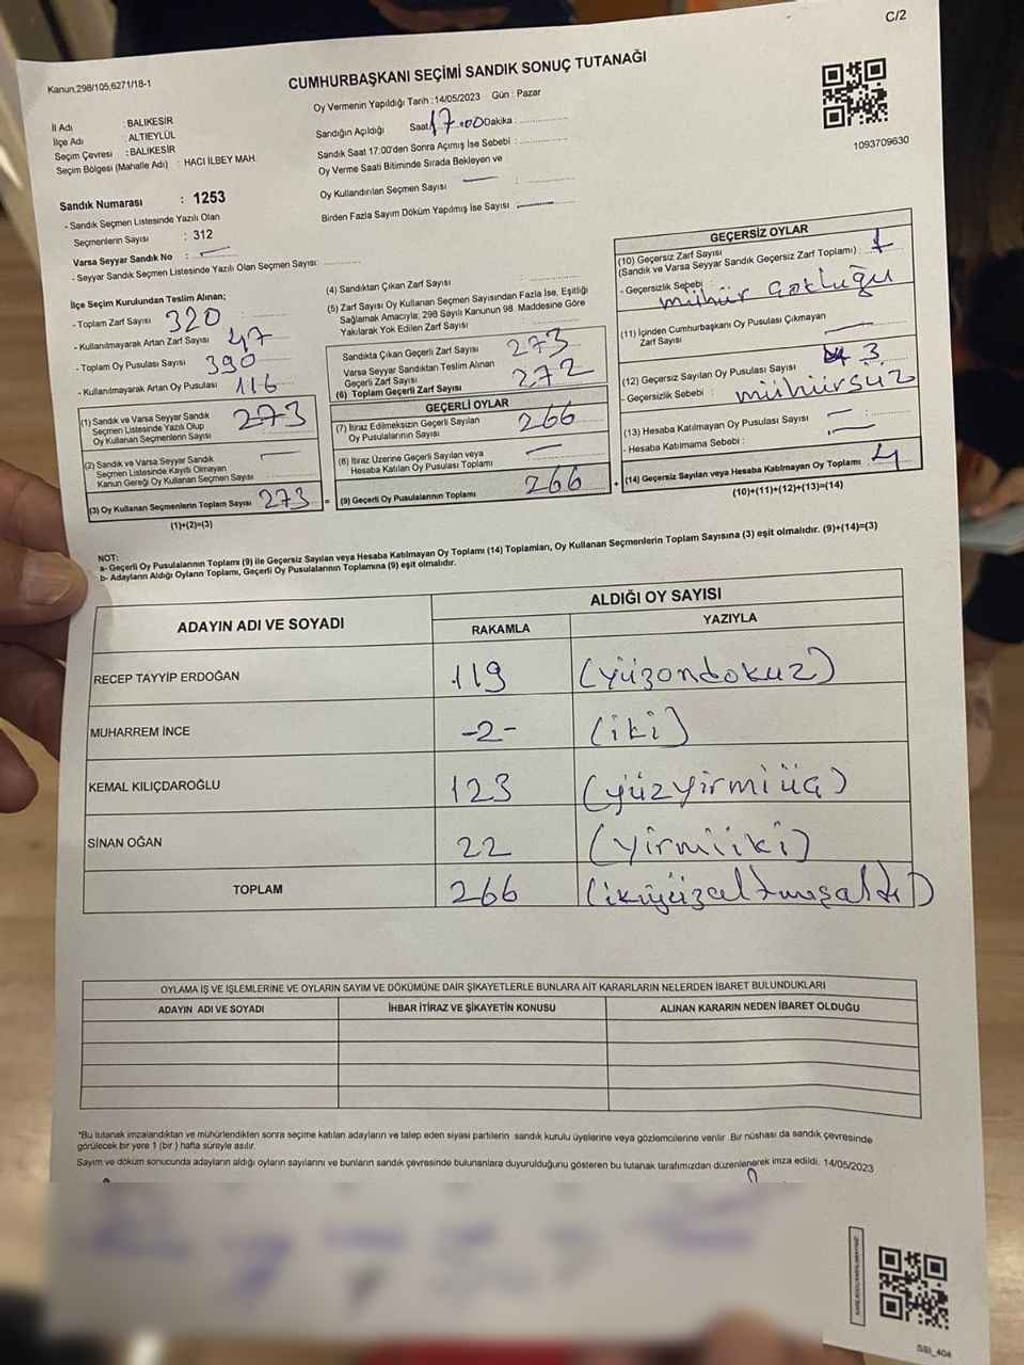 C/2
Kanun,298/105,6271/18-1
CUMHURBAŞKANI SEÇİMİ SANDIK SONUÇ TUTANAĞI
Oy Vermenin Yapıldığı Tarih :14/05/2023 Gün : Pazar
İl Adı : BALIKESİR
İlçe Adı : ALTIEYLÜL
Seçim Çevresi : BALIKESİR
Seçim Bölgesi (Mahalle Adı) : HACI İLBEY MAH.
Sandığın Açıldığı Saat 17.00 Dakika :
Sandık Saat 17:00'den Sonra Açımış İse Sebebi :
Oy Verme Saati Bitiminde Sırada Bekleyen ve
Oy Kullandırılan Seçmen Sayısı
Birden Fazla Sayım Döküm Yapılmış İse Sayısı
1093709630
Sandık Numarası : 1253
- Sandık Seçmen Listesinde Yazılı Olan
Seçmenlerin Sayısı : 312
Varsa Seyyar Sandık No :
- Seyyar Sandık Seçmen Listesinde Yazılı Olan Seçmen Sayısı:
İlçe Seçim Kurulundan Teslim Alınan;
- Toplam Zarf Sayısı 320
- Kullanılmayarak Artan Zarf Sayısı 47
- Toplam Oy Pusulası Sayısı 390
- Kullanılmayarak Artan Oy Pusulası 116
(1) Sandık ve Varsa Seyyar Sandık
Seçmen Listesinde Yazılı Olup
Oy Kullanan Seçmenlerin Sayısı 273
(2) Sandık ve Varsa Seyyar Sandık
Seçmen Listesinde Kayıtlı Olmayan
Kanun Gereği Oy Kullanan Seçmen Sayısı
(3) Oy Kullanan Seçmenlerin Toplam Sayısı 273
(1)+(2)=(3)
(4) Sandıktan Çıkan Zarf Sayısı
(5) Zarf Sayısı Oy Kullanan Seçmen Sayısından Fazla İse, Eşitliği
Sağlamak Amacıyla; 298 Sayılı Kanunun 98. Maddesine Göre
Yakılarak Yok Edilen Zarf Sayısı
Sandıkta Çıkan Geçerli Zarf Sayısı 273
Varsa Seyyar Sandıktan Teslim Alınan
Geçerli Zarf Sayısı
(6) Toplam Geçerli Zarf Sayısı 272
GEÇERLİ OYLAR
(7) İtiraz Edilmeksizin Geçerli Sayılan
Oy Pusulalarının Sayısı 266
(8) İtiraz Üzerine Geçerli Sayılan veya
Hesaba Katılan Oy Pusulası Toplamı
(9) Geçerli Oy Pusulalarının Toplamı 266
GEÇERSİZ OYLAR
(10) Geçersiz Zarf Sayısı
(Sandık ve Varsa Seyyar Sandık Geçersiz Zarf Toplamı) : 1
- Geçersizlik Sebebi mühür çokluğu
(11) İçinden Cumhurbaşkanı Oy Pusulası Çıkmayan
Zarf Sayısı
(12) Geçersiz Sayılan Oy Pusulası Sayısı 3
- Geçersizlik Sebebi : mühürsüz
(13) Hesaba Katılmayan Oy Pusulası Sayısı
- Hesaba Katılmama Sebebi :
(14) Geçersiz Sayılan veya Hesaba Katılmayan Oy Toplamı 4
(10)+(11)+(12)+(13)=(14)
NOT:
a- Geçerli Oy Pusulalarının Toplamı (9) ile Geçersiz Sayılan veya Hesaba Katılmayan Oy Toplamı (14) Toplamları, Oy Kullanan Seçmenlerin Toplam Sayısına (3) eşit olmalıdır. (9)+(14)=(3)
b- Adayların Aldığı Oyların Toplamı, Geçerli Oy Pusulalarının Toplamına (9) eşit olmalıdır.
ADAYIN ADI VE SOYADI
ALDIĞI OY SAYISI
RAKAMLA YAZIYLA
RECEP TAYYİP ERDOĞAN 119 (yüzondokuz)
MUHARREM İNCE -2- (iki)
KEMAL KILIÇDAROĞLU 123 (yüzyirmiüç)
SİNAN OĞAN 22 (yirmiiki)
TOPLAM 266 (ikiyüzaltmışaltı)
OYLAMA İŞ VE İŞLEMLERİNE VE OYLARIN SAYIM VE DÖKÜMÜNE DAİR ŞİKAYETLERLE BUNLARA AİT KARARLARIN NELERDEN İBARET BULUNDUKLARI
ADAYIN ADI VE SOYADI İHBAR İTİRAZ VE ŞİKAYETİN KONUSU ALINAN KARARIN NEDEN İBARET OLDUĞU
*Bu tutanak imzalandıktan ve mühürlendikten sonra seçime katılan adayların ve talep eden siyasi partilerin sandık kurulu üyelerine veya gözlemcilerine verilir. Bir nüshası da sandık çevresinde
görülecek bir yere 1 (bir) hafta süreyle asılır.
Sayım ve döküm sonucunda adayların aldığı oyların sayılarını ve bunların sandık çevresinde bulunanlara duyurulduğunu gösteren bu tutanak tarafımızdan düzenlenerek imza edildi. 14/05/2023
SSI_404